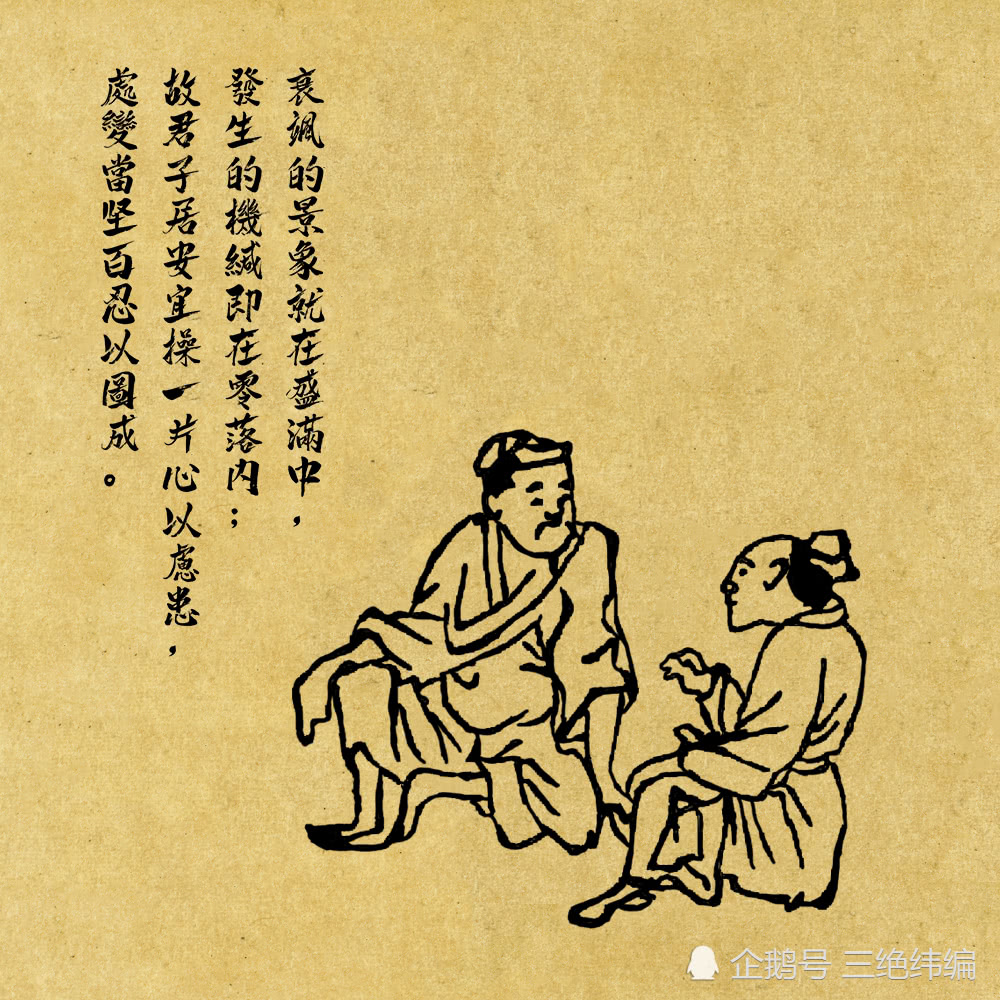 衰颯的景象就在盛滿中，
發生的機緘即在零落內；
故君子居安宜操一片心以慮患，
處變當坚百忍以圖成。
企鹅号 三绝纬编